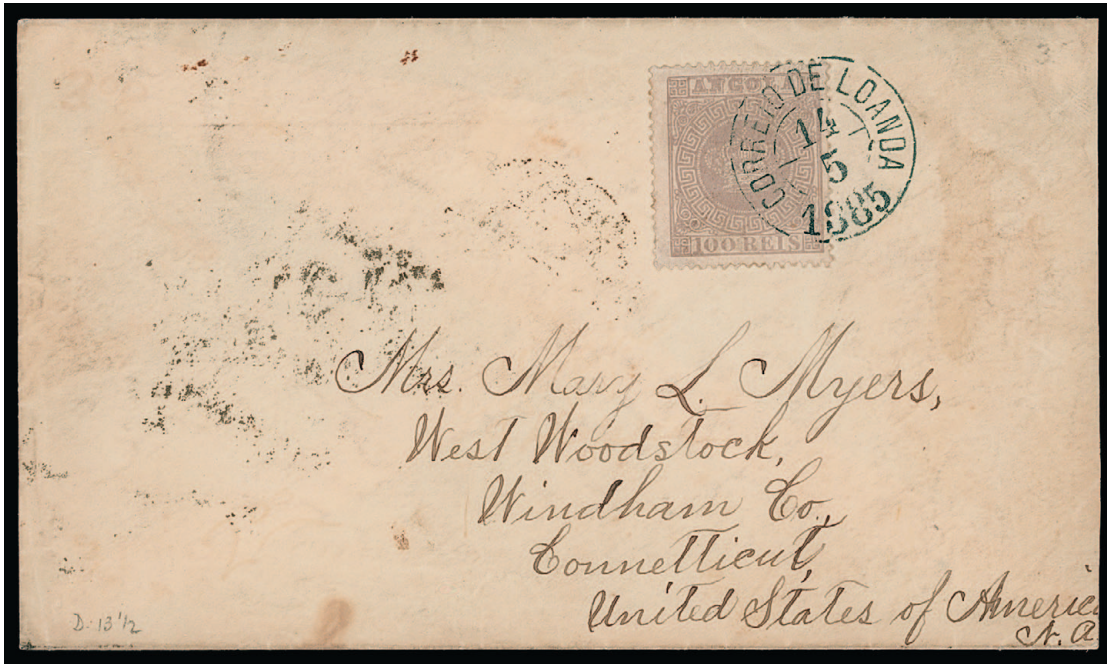 3.
ANGOLA
CORREIO DE LOANDA
14
5
1885
100 REIS
Mrs. Mary L. Myers,
West Woodstock,
Windham Co.,
Connetticut,
United States of America
N. A.
D. 13½